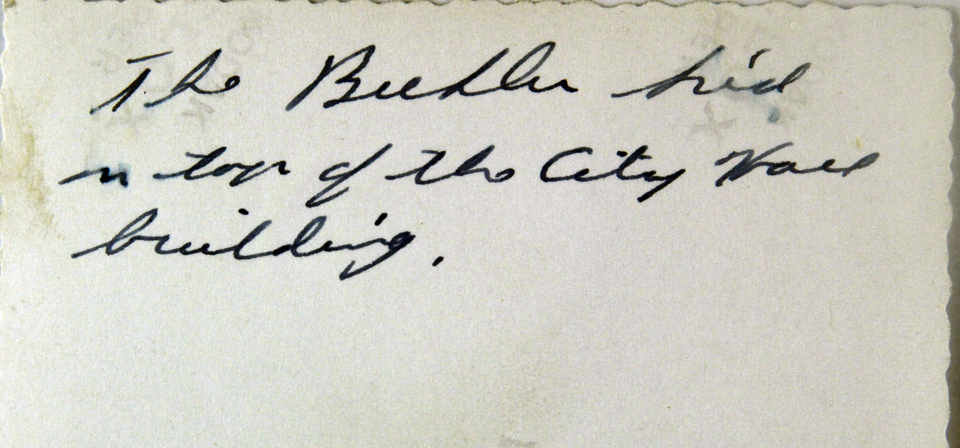 The kid
on top of the City Hall
building.